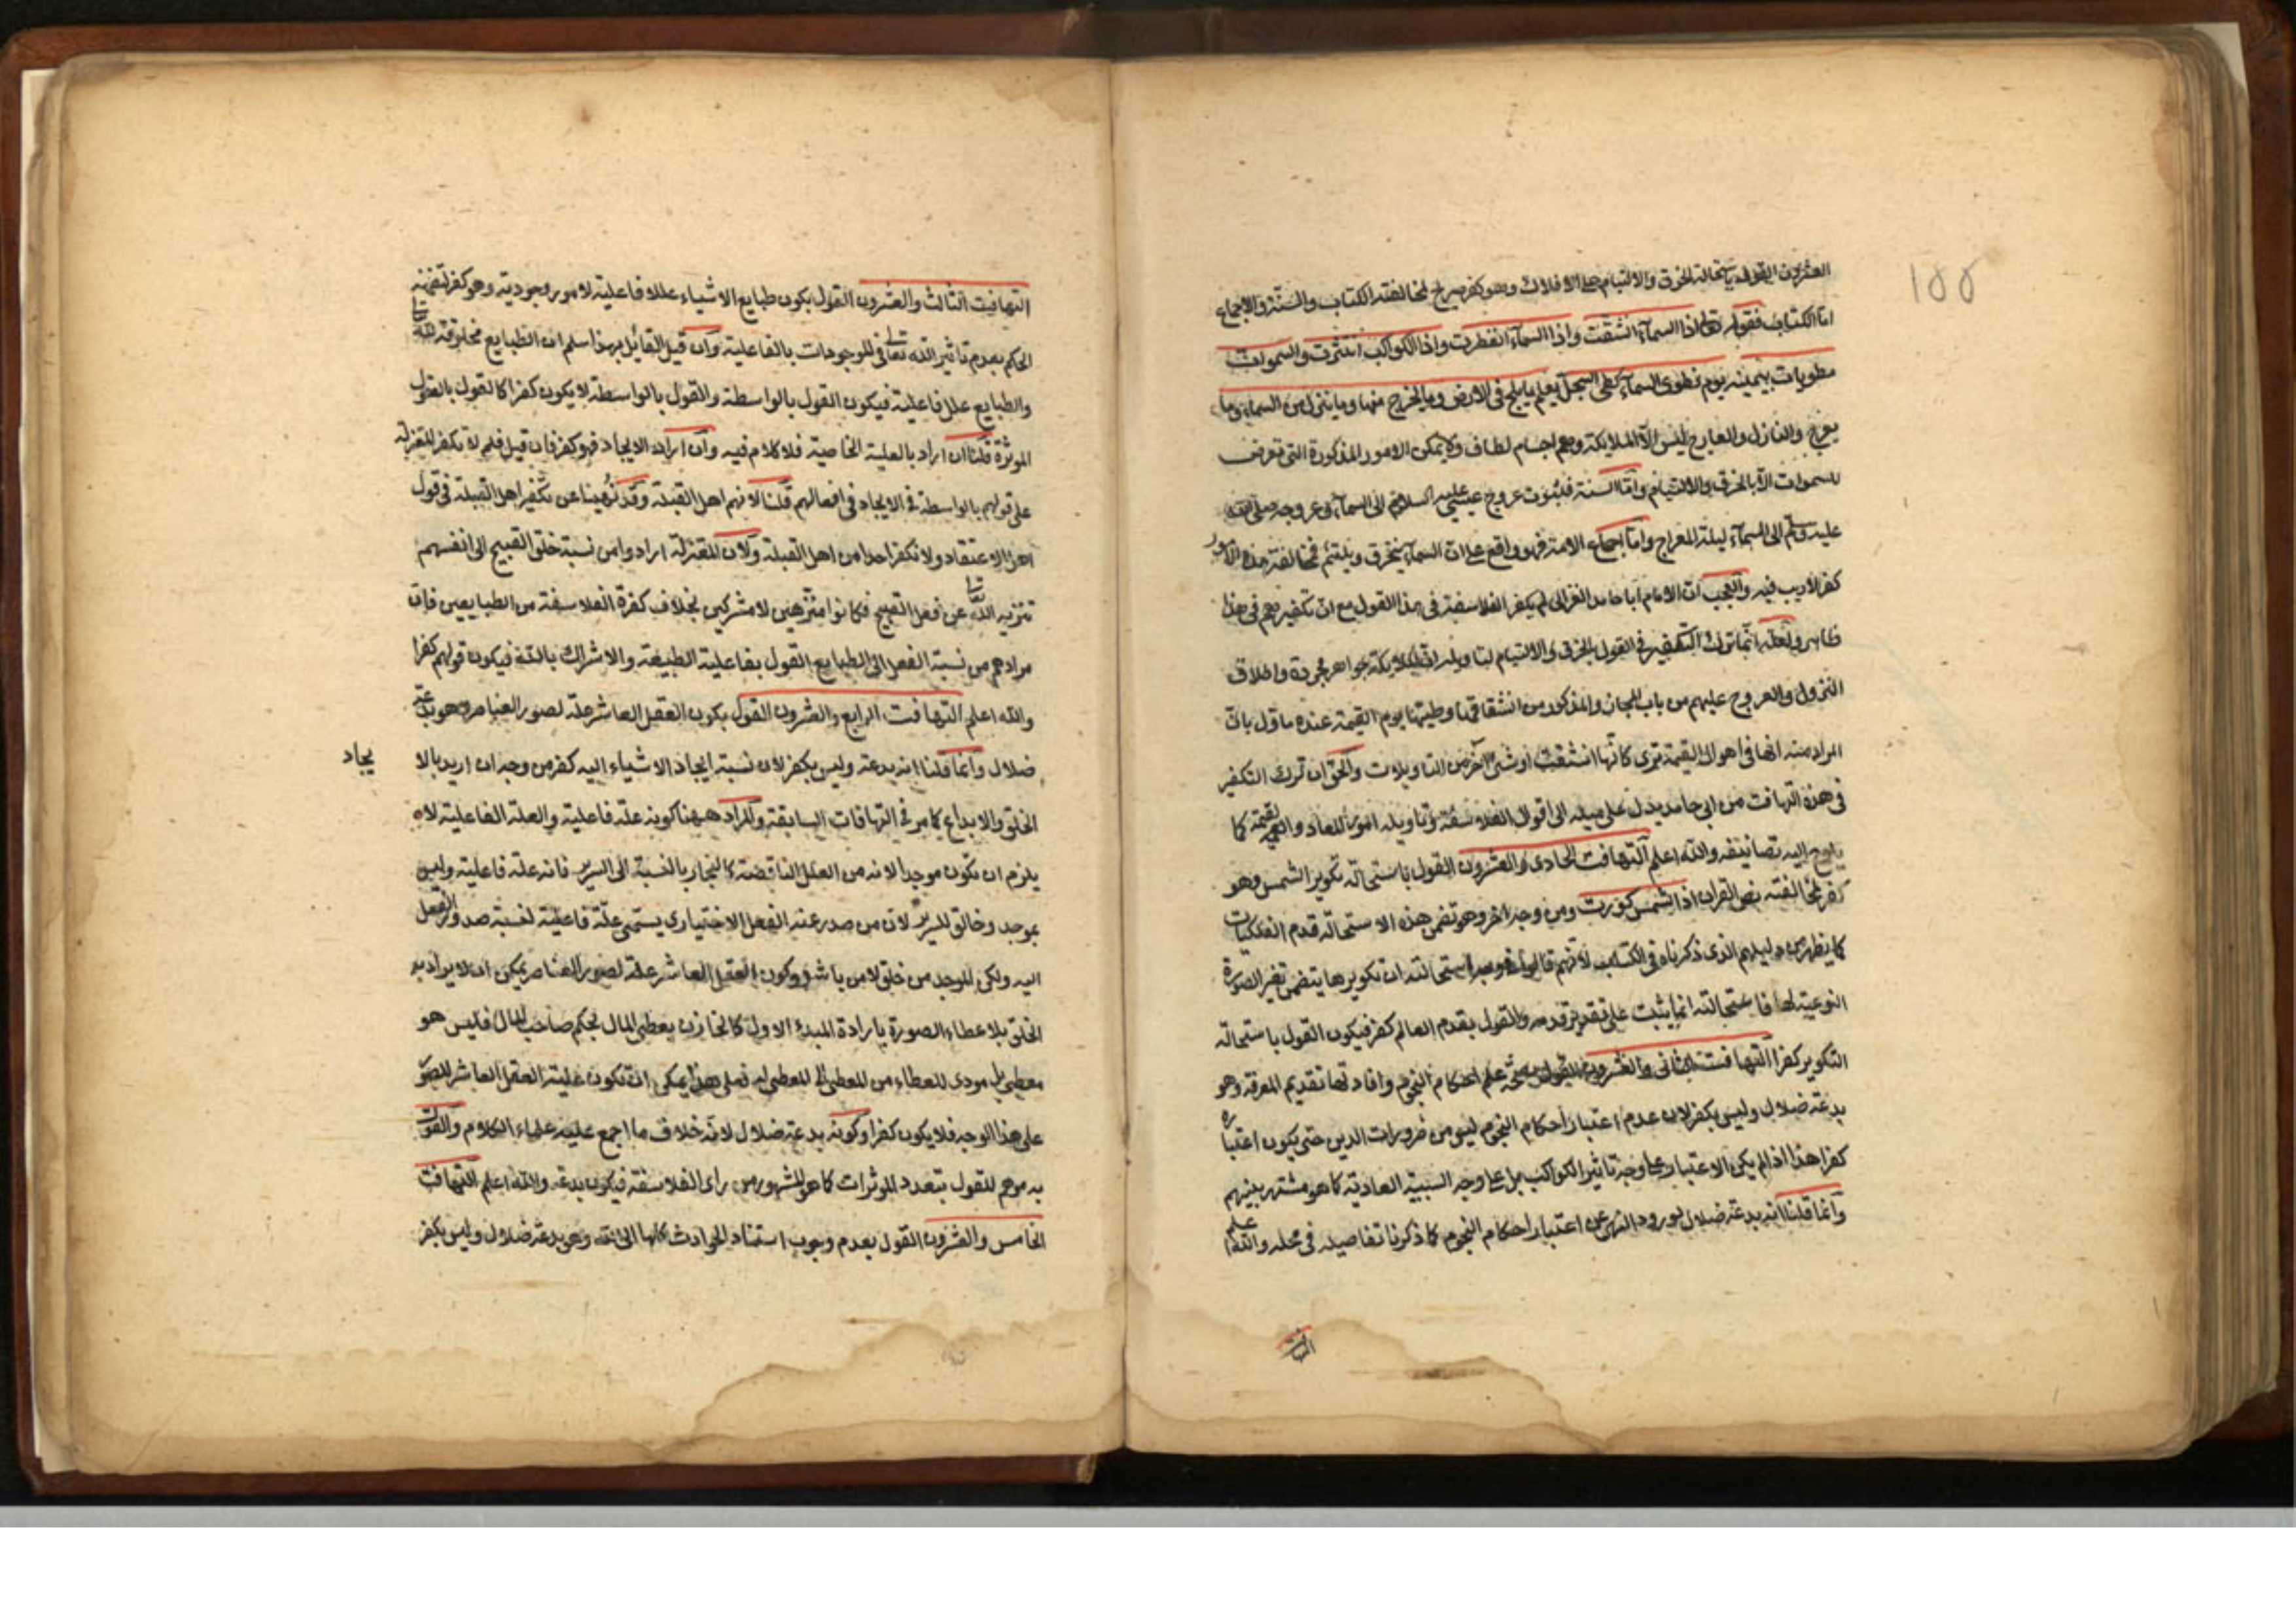 ١٥٥
العشرون القول باستحالة الخرق والالتيام على الافلاك وهو كفر صريح لمخالفته الكتاب والسنة والاجماع
اما الكتاب فقوله تعالى اذا السماء انشقت واذا السماء انفطرت واذا الكواكب انتثرت والسموات
مطويات بيمينه يوم نطوى السماء كطى السجل يعلم ما يلج فى الارض وما يخرج منها وما ينزل من السماء وما
يعرج والنازل والعارج ليس الا الملايكة وهم اجسام لطاف ولا يمكن الامور المذكورة التى تعرض
للسموات الا بالخرق والالتيام واما السنة فلثبوت عروج عيسى عليه السلام الى السماء وعروجه صلى الله
عليه وسلم الى السماء ليلة المعراج واما اجماع الامة فهو واقع على ان السماء ينخرق ويلتئم فمخالفة هذه الامور
كفر لا ريب فيه والعجب ان الامام ابا حامد الغزالى لم يكفر الفلاسفة فى هذا القول مع ان تكفيرهم فى هذا
ظاهر ولعله انما ترك التكفير فى القول بالخرق والالتيام لتاويله ان الملايكة جواهر مجردة واطلاق
النزول والعروج عليهم من باب المجاز والمذكور من انشقاقها وطيتها يوم القيمة عنده ماول بان
المراد منه انها فى اهوال القيمة ترى كانها انشقت او شئ آخر من التاويلات والحق ان ترك التكفير
فى هذه التهافت من ابى حامد يدل على ميله الى اقوال الفلاسفة وتاويله امور المعاد والقيمة كما
يلوح اليه تصانيفه والله اعلم التهافت الحادى والعشرون القول باستحالة تكوير الشمس وهو
كفر لمخالفته نص القران اذا الشمس كورت ومن وجه اخر وهو تضمن هذه الاستحالة قدم الفلكيات
كما يظهر من دليلهم الذى ذكرناه فى الكتاب لانهم قالوا فى وجه استحالته ان تكويرها يتضمن تغير الصورة
النوعية لها فاستحالته انما يثبت على تقدير قدمه والقول بقدم العالم كفر فيكون القول باستحالة
التكوير كفرا التهافت الثانى والعشرون القول بصحة علم احكام النجوم وافادتها تقديم المعرفة وهو
بدعة ضلال وليس بكفر لان عدم اعتبار احكام النجوم ليس من ضرورات الدين حتى يكون اعتباره
كفرا هذا اذا لم يكن الاعتبار على وجه تاثير الكواكب بل على وجه السببية العادية كما هو مشتهر بينهم
وانما قلنا انه بدعة ضلال لورود النهى عن اعتبار احكام النجوم كما ذكرنا تفاصيله فى محله والله اعلم
التهافت
التهافت الثالث والعشرون القول بكون طبايع الاشياء عللا فاعلية لامور وجودية وهو كفر لتضمنه
الحكم بعدم تاثير الله تعالى فى الموجودات بالفاعلية وان قيل القائل بهذا سلم ان الطبايع مخلوقة لله تعالى
والطبايع علل فاعلية فيكون القول بالواسطة والقول بالواسطة لا يكون كفرا كالقول بالقوى
الموثرة قلنا ان اراد بالعلية الخاصية فلا كلام فيه وان اراد الايجاد فهو كفر فان قيل فلم لا تكفر المعتزلة
على قولهم بالواسطة فى الايجاد فى افعالهم قلنا لانهم اهل القبلة وقد نهينا عن تكفير اهل القبلة فى قول
اهل الاعتقاد ولا نكفر احدا من اهل القبلة ولان المعتزلة ارادوا من نسبة خلق القبيح الى انفسهم
تنزيه الله تعالى عن فعل القبيح فكانوا منزهين لا مشركين بخلاف كفرة الفلاسفة من الطبايعيين فان
مرادهم من نسبة الفعل الى الطبايع القول بفاعلية الطبيعة والاشراك بالله فيكون قولهم كفرا
والله اعلم التهافت الرابع والعشرون القول بكون العقل العاشر علة لصور العناصر وهو بدعة
ضلال وانما قلنا انه بدعة وليس بكفر لان نسبة ايجاد الاشياء اليه كفر من وجه ان اريد بالا
يجاد
الخلق والابداع كما مر فى التهافات السابقة والمراد ههنا كونه علة فاعلية والعلة الفاعلية لا
يلزم ان تكون موجدا لانه من العلل الناقصة كالنجار بالنسبة الى السرير فانه علة فاعلية وليس
بموجد وخالق للسرير لان من صدر عنه الفعل الاختيارى يسمى علة فاعلية لنسبة صدور الفعل
اليه ولكن الموجد من خلق لا من باشر وكون العقل العاشر علة لصور العناصر يمكن ان لا يراد به
الخلق بل اعطاء الصورة بارادة المبدء الاول كالخازن يعطى المال بحكم صاحب المال فليس هو
معطى بل مودى للعطاء من المعطى الى المعطى له فعلى هذا يمكن ان تكون علية العقل العاشر للصور
على هذا الوجه فلا يكون كفرا وكونه بدعة ضلال لانه خلاف ما اجمع عليه علماء الكلام والقول
به موهم للقول بتعدد الموثرات كما هو المشهور من راى الفلاسفة فيكون بدعة والله اعلم التهافت
الخامس والعشرون القول بعدم وجوب استناد الحوادث كلها الى الله وهو بدعة ضلال وليس بكفر